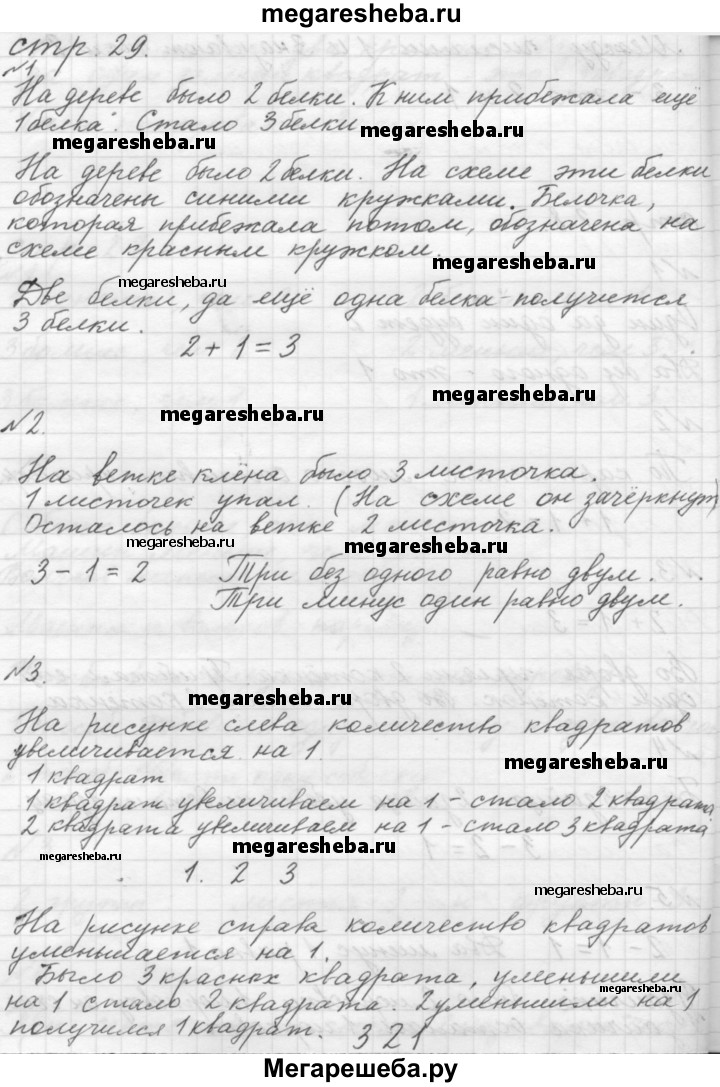 megaresheba.ru
стр. 29.
№1
На дереве было 2 белки. К ним прибежала ещё
1 белка. Стало 3 белки
megaresheba.ru
megaresheba.ru
На дереве было 2 белки. На схеме эти белки
обозначены синими кружками. Белочка,
которая прибежала потом, обозначена на
схеме красным кружком.
megaresheba.ru
megaresheba.ru
Две белки, да ещё одна белка - получится
3 белки.
megaresheba.ru
2 + 1 = 3
megaresheba.ru
megaresheba.ru
№2.
На ветке клёна было 3 листочка.
1 листочек упал. (На схеме он зачёркнут)
Осталось на ветке 2 листочка.
megaresheba.ru
megaresheba.ru
3 - 1 = 2 Три без одного равно двум.
Три минус один равно двум.
megaresheba.ru
№3.
megaresheba.ru
На рисунке слева количество квадратов
увеличивается на 1.
megaresheba.ru
1 квадрат
1 квадрат увеличиваем на 1 - стало 2 квадрата.
2 квадрата увеличиваем на 1 - стало 3 квадрата.
megaresheba.ru
megaresheba.ru
1. 2 3
megaresheba.ru
На рисунке справа количество квадратов
уменьшается на 1.
Было 3 красных квадрата, уменьшили
на 1 стало 2 квадрата. 2 уменьшили на 1
megaresheba.ru
получился 1 квадрат. 3 2 1
Мегарешеба.ру